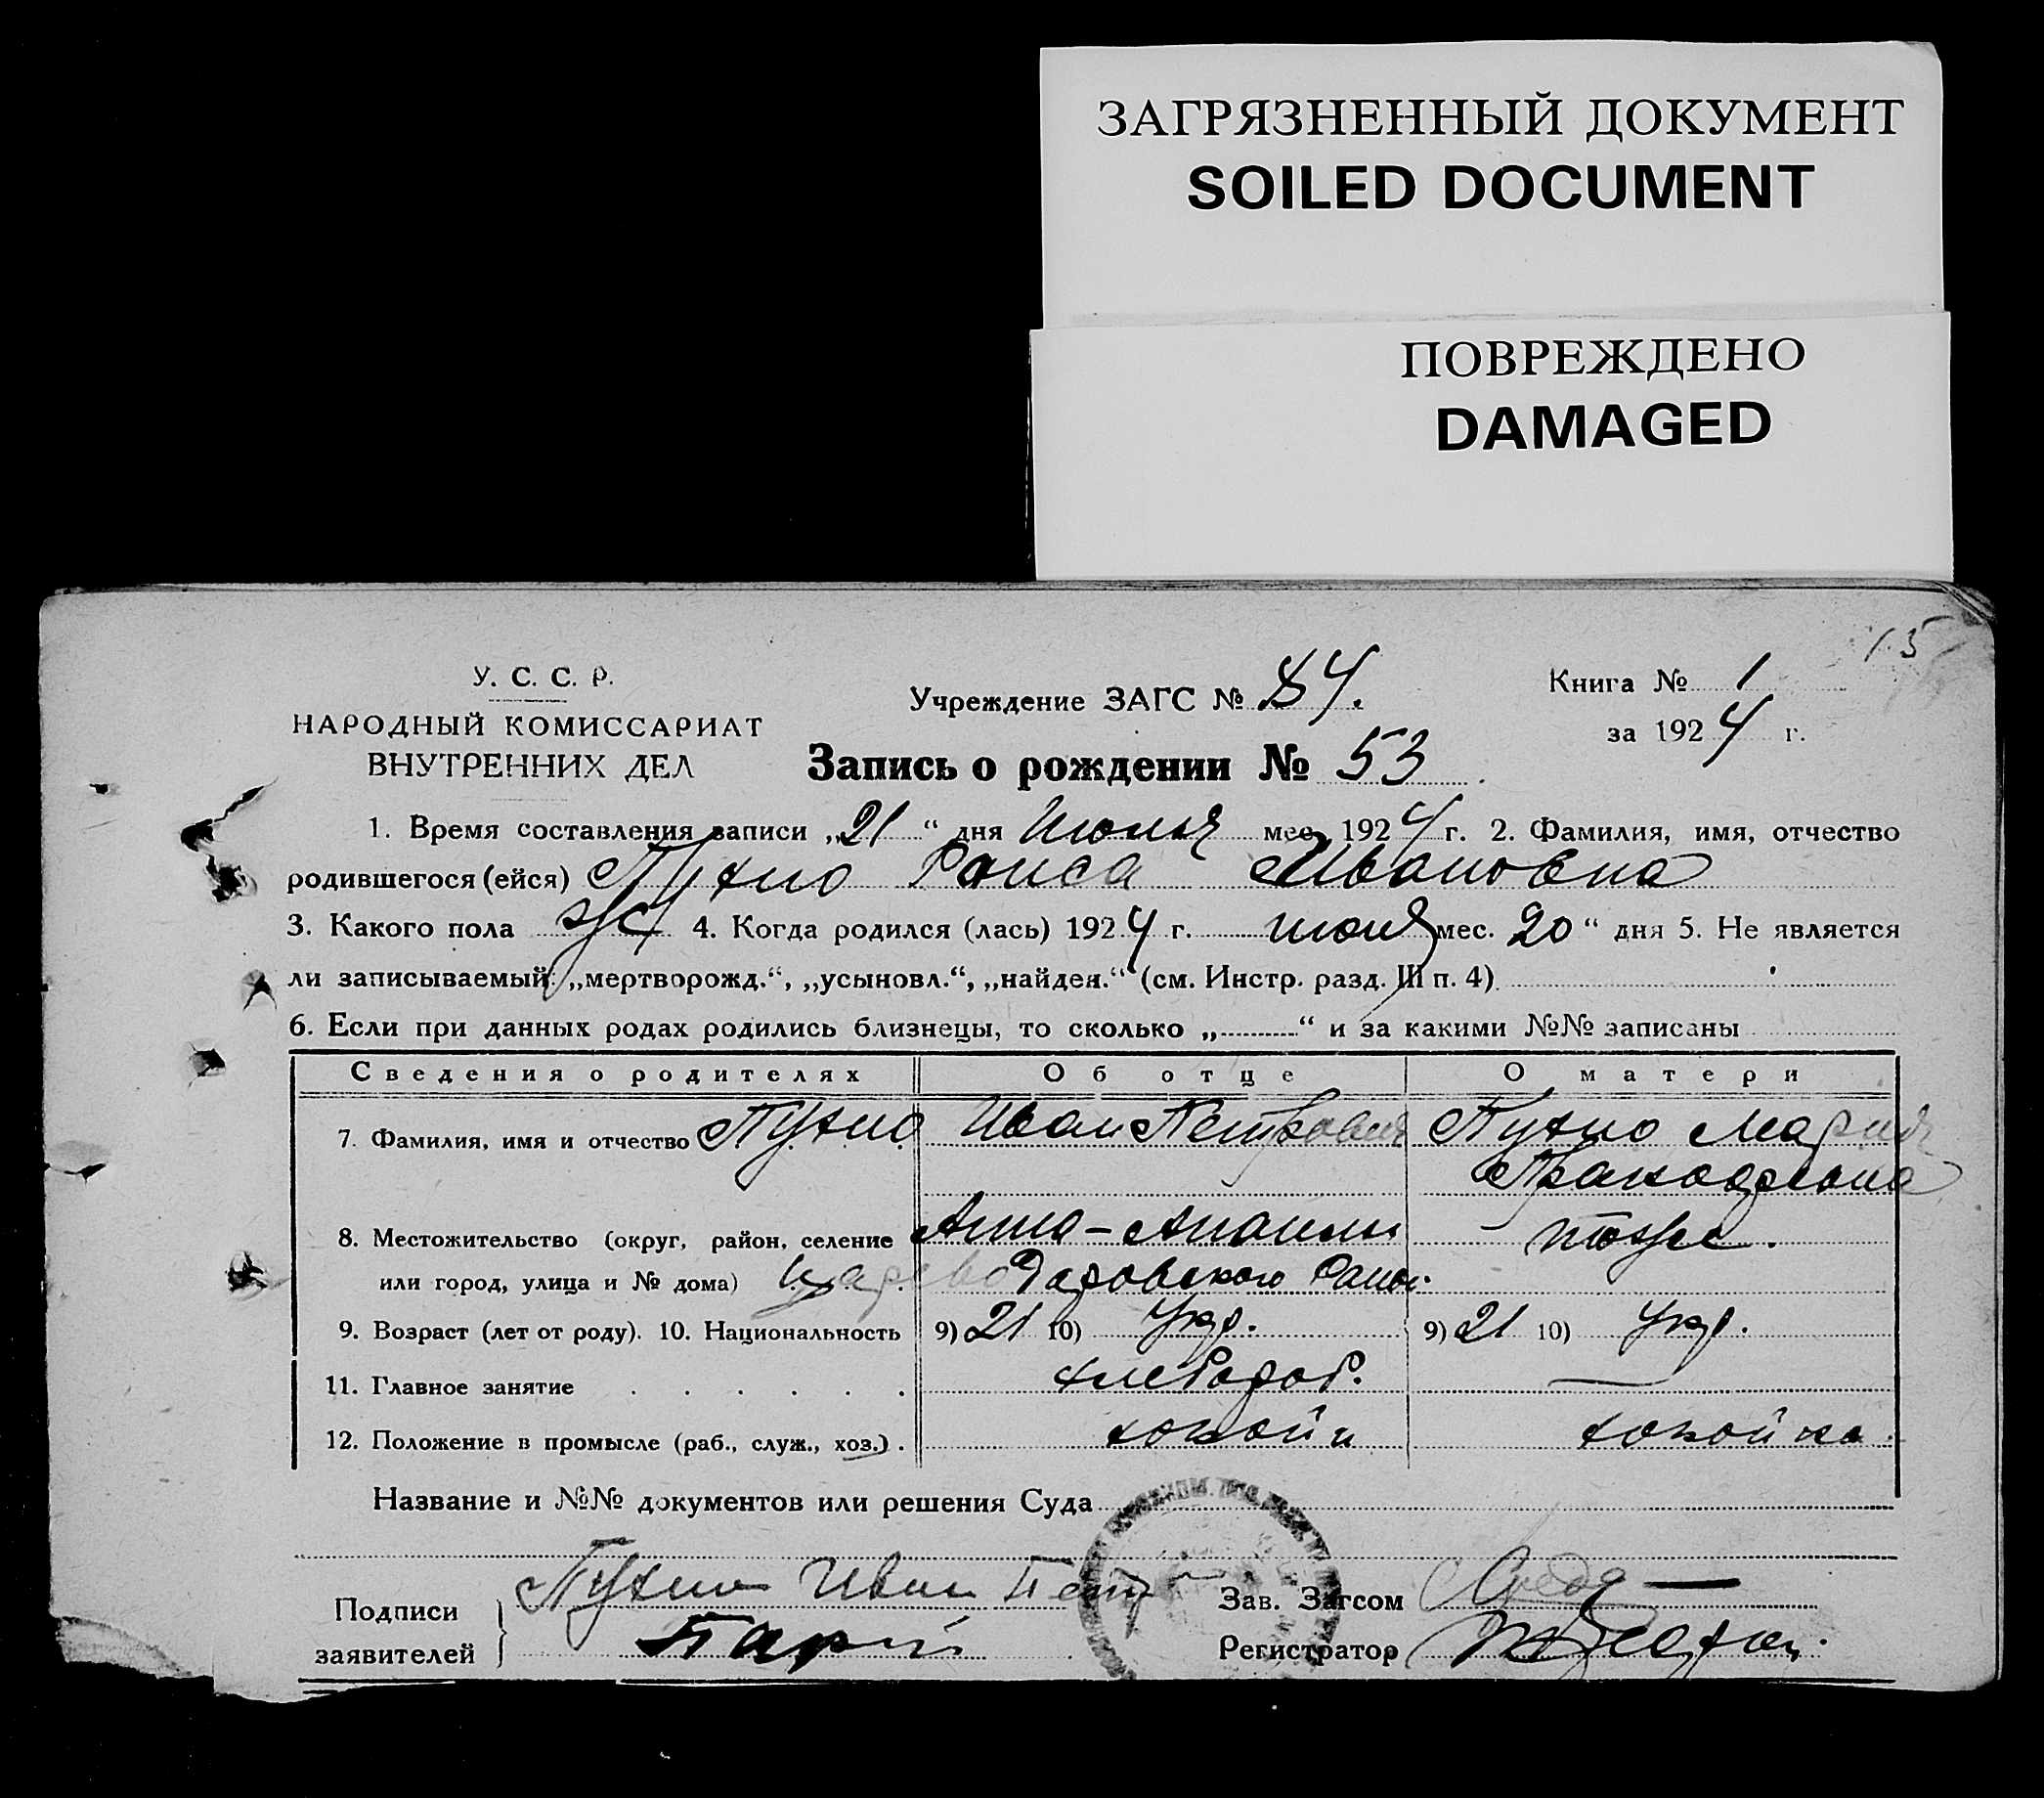 ЗАГРЯЗНЕННЫЙ ДОКУМЕНТ
SOILED DOCUMENT
ПОВРЕЖДЕНО
DAMAGED
15
У. С. С. Р.
НАРОДНЫЙ КОМИССАРИАТ
ВНУТРЕННИХ ДЕЛ
Учреждение ЗАГС № 84.
Книга № 1
за 1924 г.
Запись о рождении № 53
1. Время составления записи „21“ дня Июля мес. 1924 г. 2. Фамилия, имя, отчество
родившегося (ейся) Пухно Раиса Ивановна
3. Какого пола ж 4. Когда родился (лась) 1924 г. июля мес. 20 “ дня 5. Не является
ли записываемый: „мертворожд.“, „усыновл.“, „найден.“ (см. Инстр. разд. III п. 4)
6. Если при данных родах родились близнецы, то сколько „ “ и за какими №№ записаны
Сведения о родителях Об отце О матери
7. Фамилия, имя и отчество Пухно Иван Петрович Пухно Мария
8. Местожительство (округ, район, селение тоже.
или город, улица и № дома) Царево Даровского Район.
9. Возраст (лет от роду). 10. Национальность 9) 21 10) Укр. 9) 21 10) Укр.
11. Главное занятие хлебороб. —
12. Положение в промысле (раб., служ., хоз.) . хозяйка
Название и №№ документов или решения Суда
Подписи Пухно Иван Петр Зав. Загсом
заявителей Регистратор